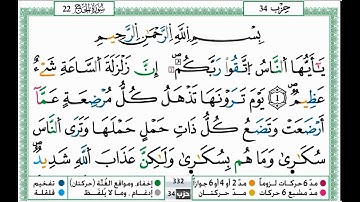 22 سُورَةُ الحَجِّ حِزْب 34
بِسْمِ اللَّهِ الرَّحْمَٰنِ الرَّحِيمِ
يَٰٓأَيُّهَا النَّاسُ اتَّقُوا۟ رَبَّكُمُۥٓ إِنَّ زَلْزَلَةَ السَّاعَةِ شَےْءٌ
عَظِيمٌ 1 يَوْمَ تَرَوْنَهَا تَذْهَلُ كُلُّ مُرْضِعَةٍ عَمَّآ
أَرْضَعَتْ وَتَضَعُ كُلُّ ذَاتِ حَمْلٍ حَمْلَهَا وَتَرَى النَّاسَ
سُكَٰرَىٰ وَمَا هُم بِسُكَٰرَىٰ وَلَٰكِنَّ عَذَابَ اللَّهِ شَدِيدٌ
مدّ 6 حركات لزوماً مدّ 2 أو 4 أو 6 جوازاً 332 إخفاء، ومواقع الغُنَّة (حركتان) تفخيم
مدّ مشبع 6 حركات مدّ حركتان حزب 34 إدغام، وما لا يُلفظ قلقلة